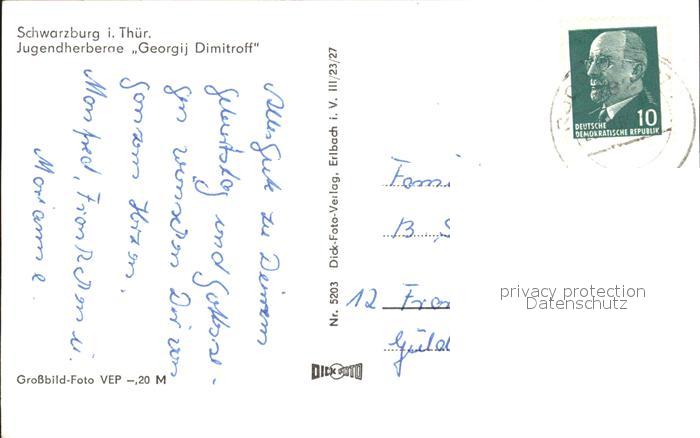 Schwarzburg i. Thür.
Jugendherberge „Georgij Dimitroff"
Alles Gute zu Deinem
Geburtstag und Gottesse-
gen wünschen Dir von
ganzem Herzen.
Manfred, Fränkchen u.
Marianne.
Großbild-Foto VEP –,20 M
Nr. 5203 Dick-Foto-Verlag, Erlbach i. V. III/23/27
DICK FOTO
10
DEUTSCHE
DEMOKRATISCHE REPUBLIK
Fami
B. S
12 Fran
Güld
privacy protection
Datenschutz